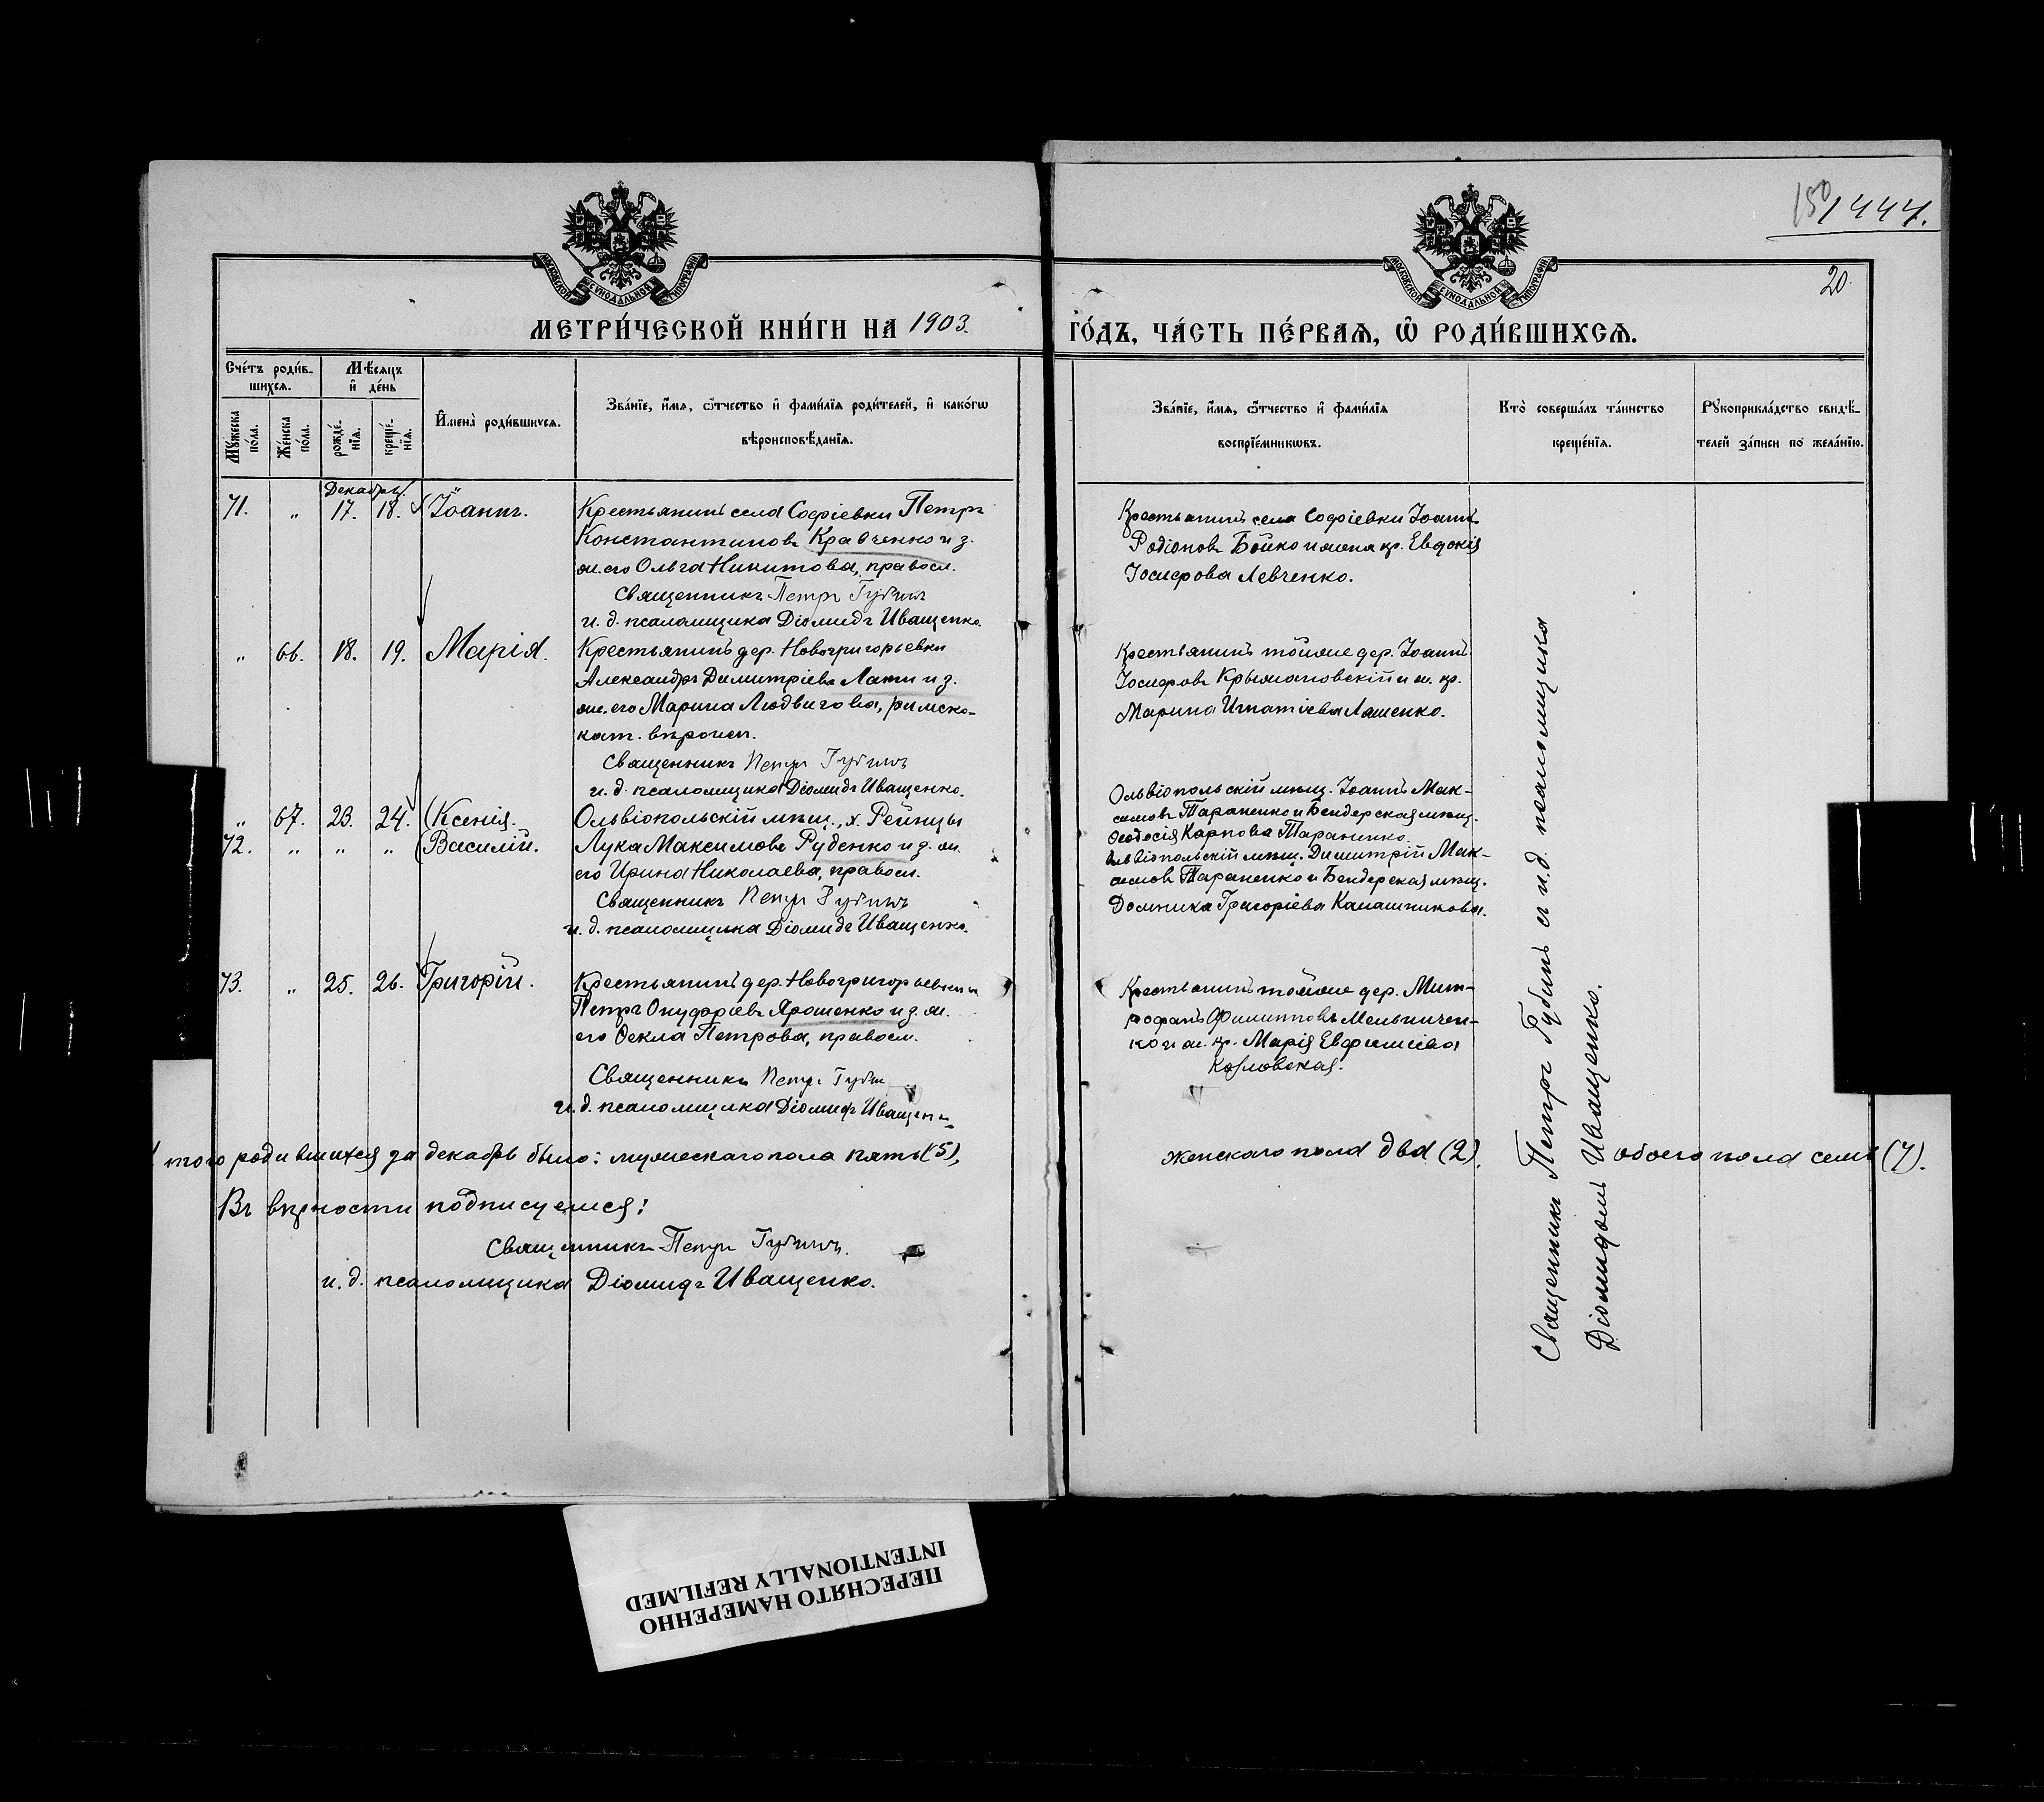 150/444.
20.
МОСКОВСКОЙ СѴНОДАЛЬНОЙ ТИПОГРАФІИ
МОСКОВСКОЙ СѴНОДАЛЬНОЙ ТИПОГРАФІИ
МЕТРИ́ЧЕСКОЙ КНИ́ГИ НА 1903.
ГО́ДЪ, ЧА́СТЬ ПЕ́РВАѦ, Ѽ РОДИ́ВШИХСѦ.
Сче́тъ роди́в-
шихсѧ.
Мѣ́сѧцъ
и҆ де́нь
Мꙋ́жеска по́ла.
Же́нска по́ла.
рожде́-нїѧ.
креще́-нїѧ.
И҆мена̀ роди́вшихсѧ.
Зва́нїе, и҆́мѧ, ѻ҆́тчество и҆ фами́лїѧ роди́телей, и҆ како́гѡ
вѣроисповѣ́данїѧ.
Зва́нїе, и҆́мѧ, ѻ҆́тчество и҆ фами́лїѧ
воспрїе́мникѡвъ.
Кто̀ соверша́лъ та́инство
креще́нїѧ.
Рꙋкоприкла́дство свидѣ́-
телей за́писи по жела́нїю.
Декабрь.
71. " 17. 18. Іоаннъ.
Крестьянинъ села Софіевки Петръ
Константиновъ Кравченко и з.
ж. его Ольга Никитова, правосл.
Священникъ Петръ Губинъ
и. д. псаломщика Діомидъ Иващенко.
Крестьянинъ села Софіевки Іоаннъ
Родіоновъ Бойко и жена кр. Евдокія
Іосифова Левченко.
" 66. 18. 19. Марія.
Крестьянинъ дер. Новогригорьевки
Александръ Димитріевъ Лати и з.
ж. его Марина Людвигова, римско-
кат. вѣроисп.
Священникъ Петръ Губинъ
и. д. псаломщика Діомидъ Иващенко.
Крестьянинъ тойже дер. Іоаннъ
Іосифовъ Крыжановскій и ж. кр.
Марина Игнатіева Ляшенко.
" 67. 23. 24. Ксенія.
72. " " " Василій.
Ольвіопольскій мѣщ., х. Рейнцы
Лука Максимовъ Руденко и з. ж.
его Ирина Николаева, правосл.
Священникъ Петръ Губинъ
и. д. псаломщика Діомидъ Иващенко.
Ольвіопольскій мѣщ. Іоаннъ Мак-
симовъ Тараненко и Бендерская мѣщ.
Ѳеодосія Карпова Тараненко.
Ольвіопольскій мѣщ. Димитрій Мак-
симовъ Тараненко и Бендерская мѣщ.
Домника Григоріева Калашникова.
73. " 25. 26. Григорій.
Крестьянинъ дер. Новогригорьевки
Петръ Онуфріевъ Ярошенко и з. ж.
его Ѳекла Петрова, правосл.
Священникъ Петръ Губинъ
и. д. псаломщика Діомидъ Иващенко
Крестьянинъ тойже дер. Мит-
рофанъ Филипповъ Мельничен-
ко и ж. кр. Марія Евфиміева
Козловская.
Священникъ Петръ Губинъ съ и. д. псаломщика
Діомидомъ Иващенко.
Итого родившихся за декабрь было: мужескаго пола пять (5),
женскаго пола два (2), обоего пола семь (7).
Въ вѣрности подписуемся:
Священникъ Петръ Губинъ.
и. д. псаломщика Діомидъ Иващенко.
ПЕРЕСНЯТО НАМЕРЕННО
INTENTIONALLY REFILMED